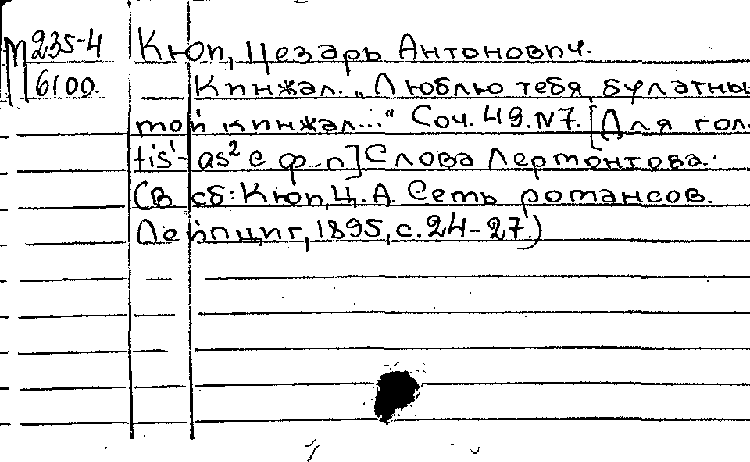 М 235-4
6100
Кюи, Цезарь Антонович.
Кинжал. „Люблю тебя, булатны
мой кинжал..." Соч. 49. N7. [Для гол.
fis¹-as² с ф-п] Слова Лермонтова.
(В сб: Кюи, Ц. А. Семь романсов.
Лейпциг, 1895, с. 24-27)